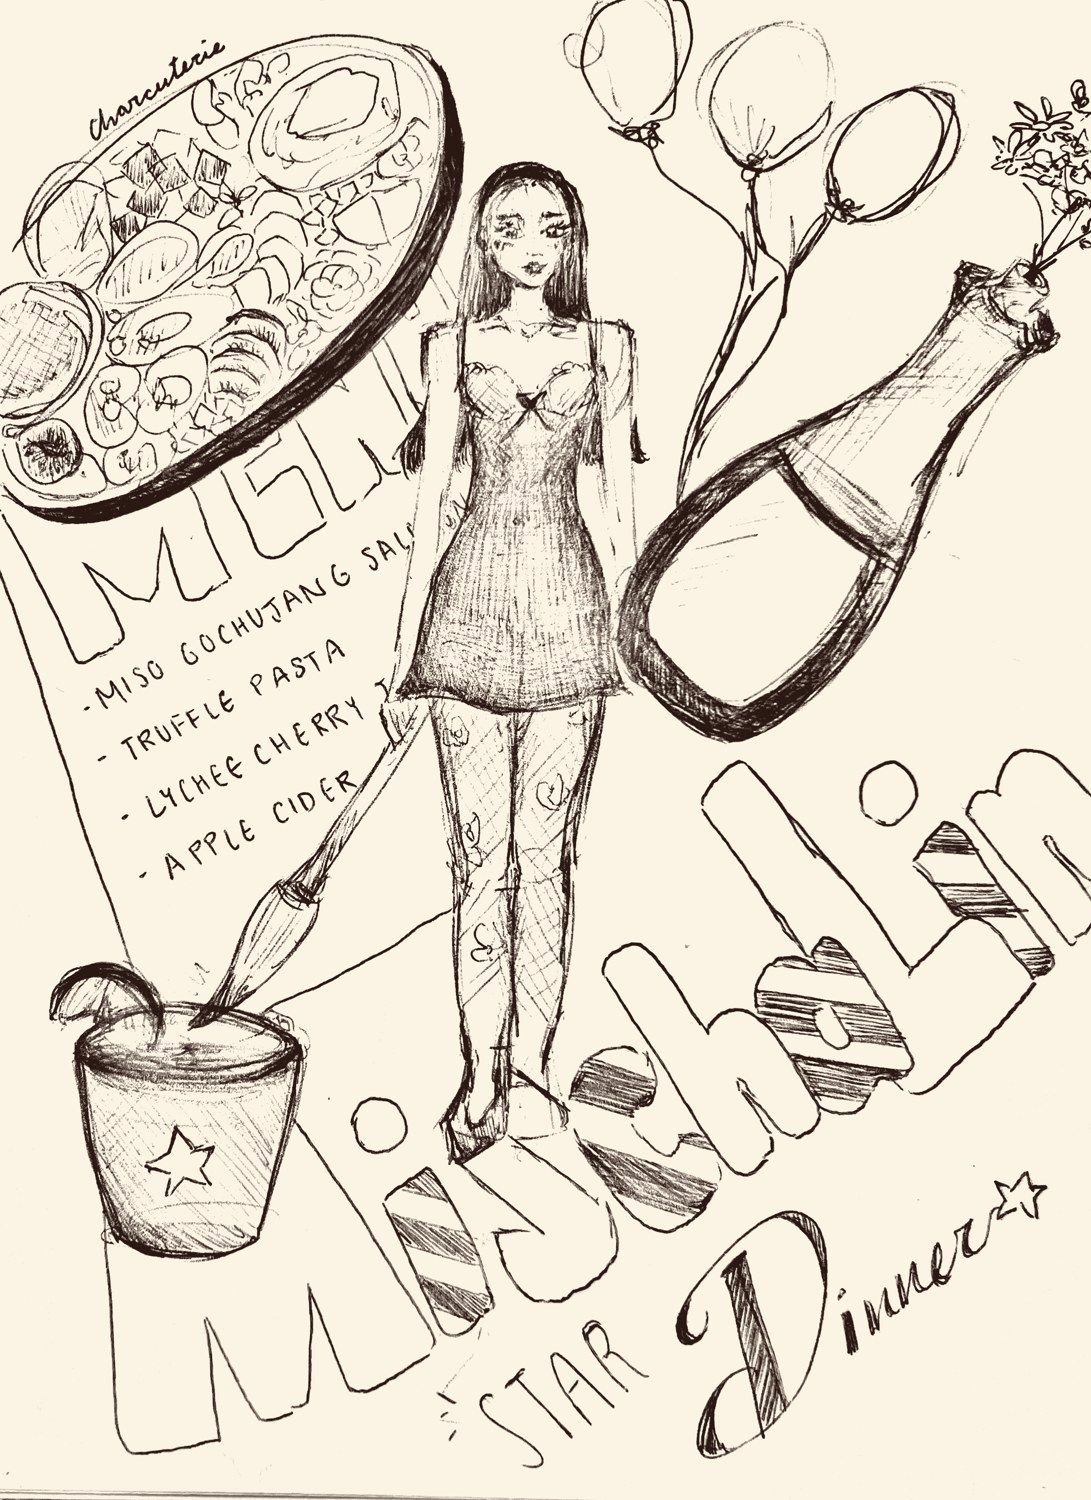 charcuterie
MENU
- MISO GOCHUJANG SAL
- TRUFFLE PASTA
- LYCHEE CHERRY
- APPLE CIDER
MischaLin
STAR
Dinner